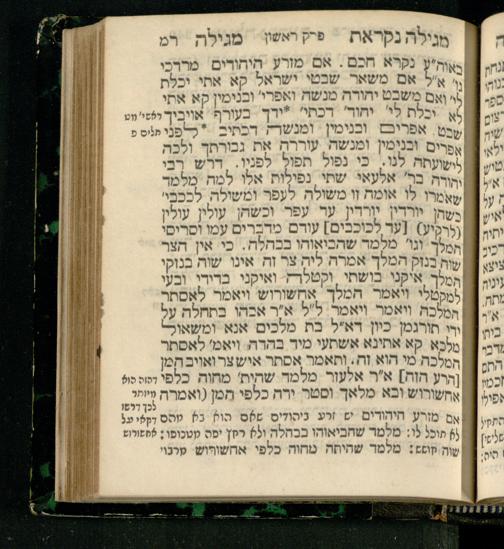 מגילה נקראת פרק ראשון מגילה רמ
באוה״ע נקרא חכם. אם מזרע היהודים מרדכי
גו׳ א״ל אם משאר שבטי ישראל קא אתי יכלת
לי׳ ואם משבט יהודה מנשה ואפרי׳ ובנימין קא אתי
לא יכלת לי׳ יהוד׳ דכתי׳ *ידך בעורף אויביך
שבט אפרים ובנימין ומנשה דכתיב *לפני
אפרים ובנימין ומנשה עוררה את גבורתך ולכה
לישועתה לנו. כי נפול תפול לפניו. דרש רבי
יהודה בר׳ אלעאי שתי נפילות אלו למה מלמד
שאמרו לו אומה זו משולה לעפר ומשולה לככבי׳
כשהן יורדין יורדין עד עפר וכשהן עולין עולין
(לרקיע) [עד לכוכבים] עודם מדברים עמו וסריסי
המלך וגו׳ מלמד שהביאוהו בבהלה. כי אין הצר
שוה בנזק המלך אמרה ליה צר זה אינו שוה בנזקי
המלך איקני בושתי וקטלה ואיקני בדידי ובעי
למקטלי ויאמר המלך אחשורוש ויאמר לאסתר
המלכה ויאמר ויאמר ל״ל א״ר אבהו בתחלה על
ידי תורגמן כיון דא״ל בת מלכים אנא ומשאול
מלכא קא אתינא אשתעי מיד בהדה. ויאמ׳ לאסתר
המלכה מי הוא זה. ותאמר אסתר איש צר ואויב המן
[הרע הזה] א״ר אלעזר מלמד שהית׳ מחוה כלפי
אחשורוש ובא מלאך וסטר ידה כלפי המן (ואמרה
תלים פ
דהזה הוא
מיותר
לכך דרשו
אחשורוש
אם מזרע היהודים יש זרע ביהודים שאם הוא בא מהם
לא תוכל לו: מלמד שהביאוהו בבהלה ולא רחץ יפה מטנופו:
שהיתה מחוה כלפי אחשורוש